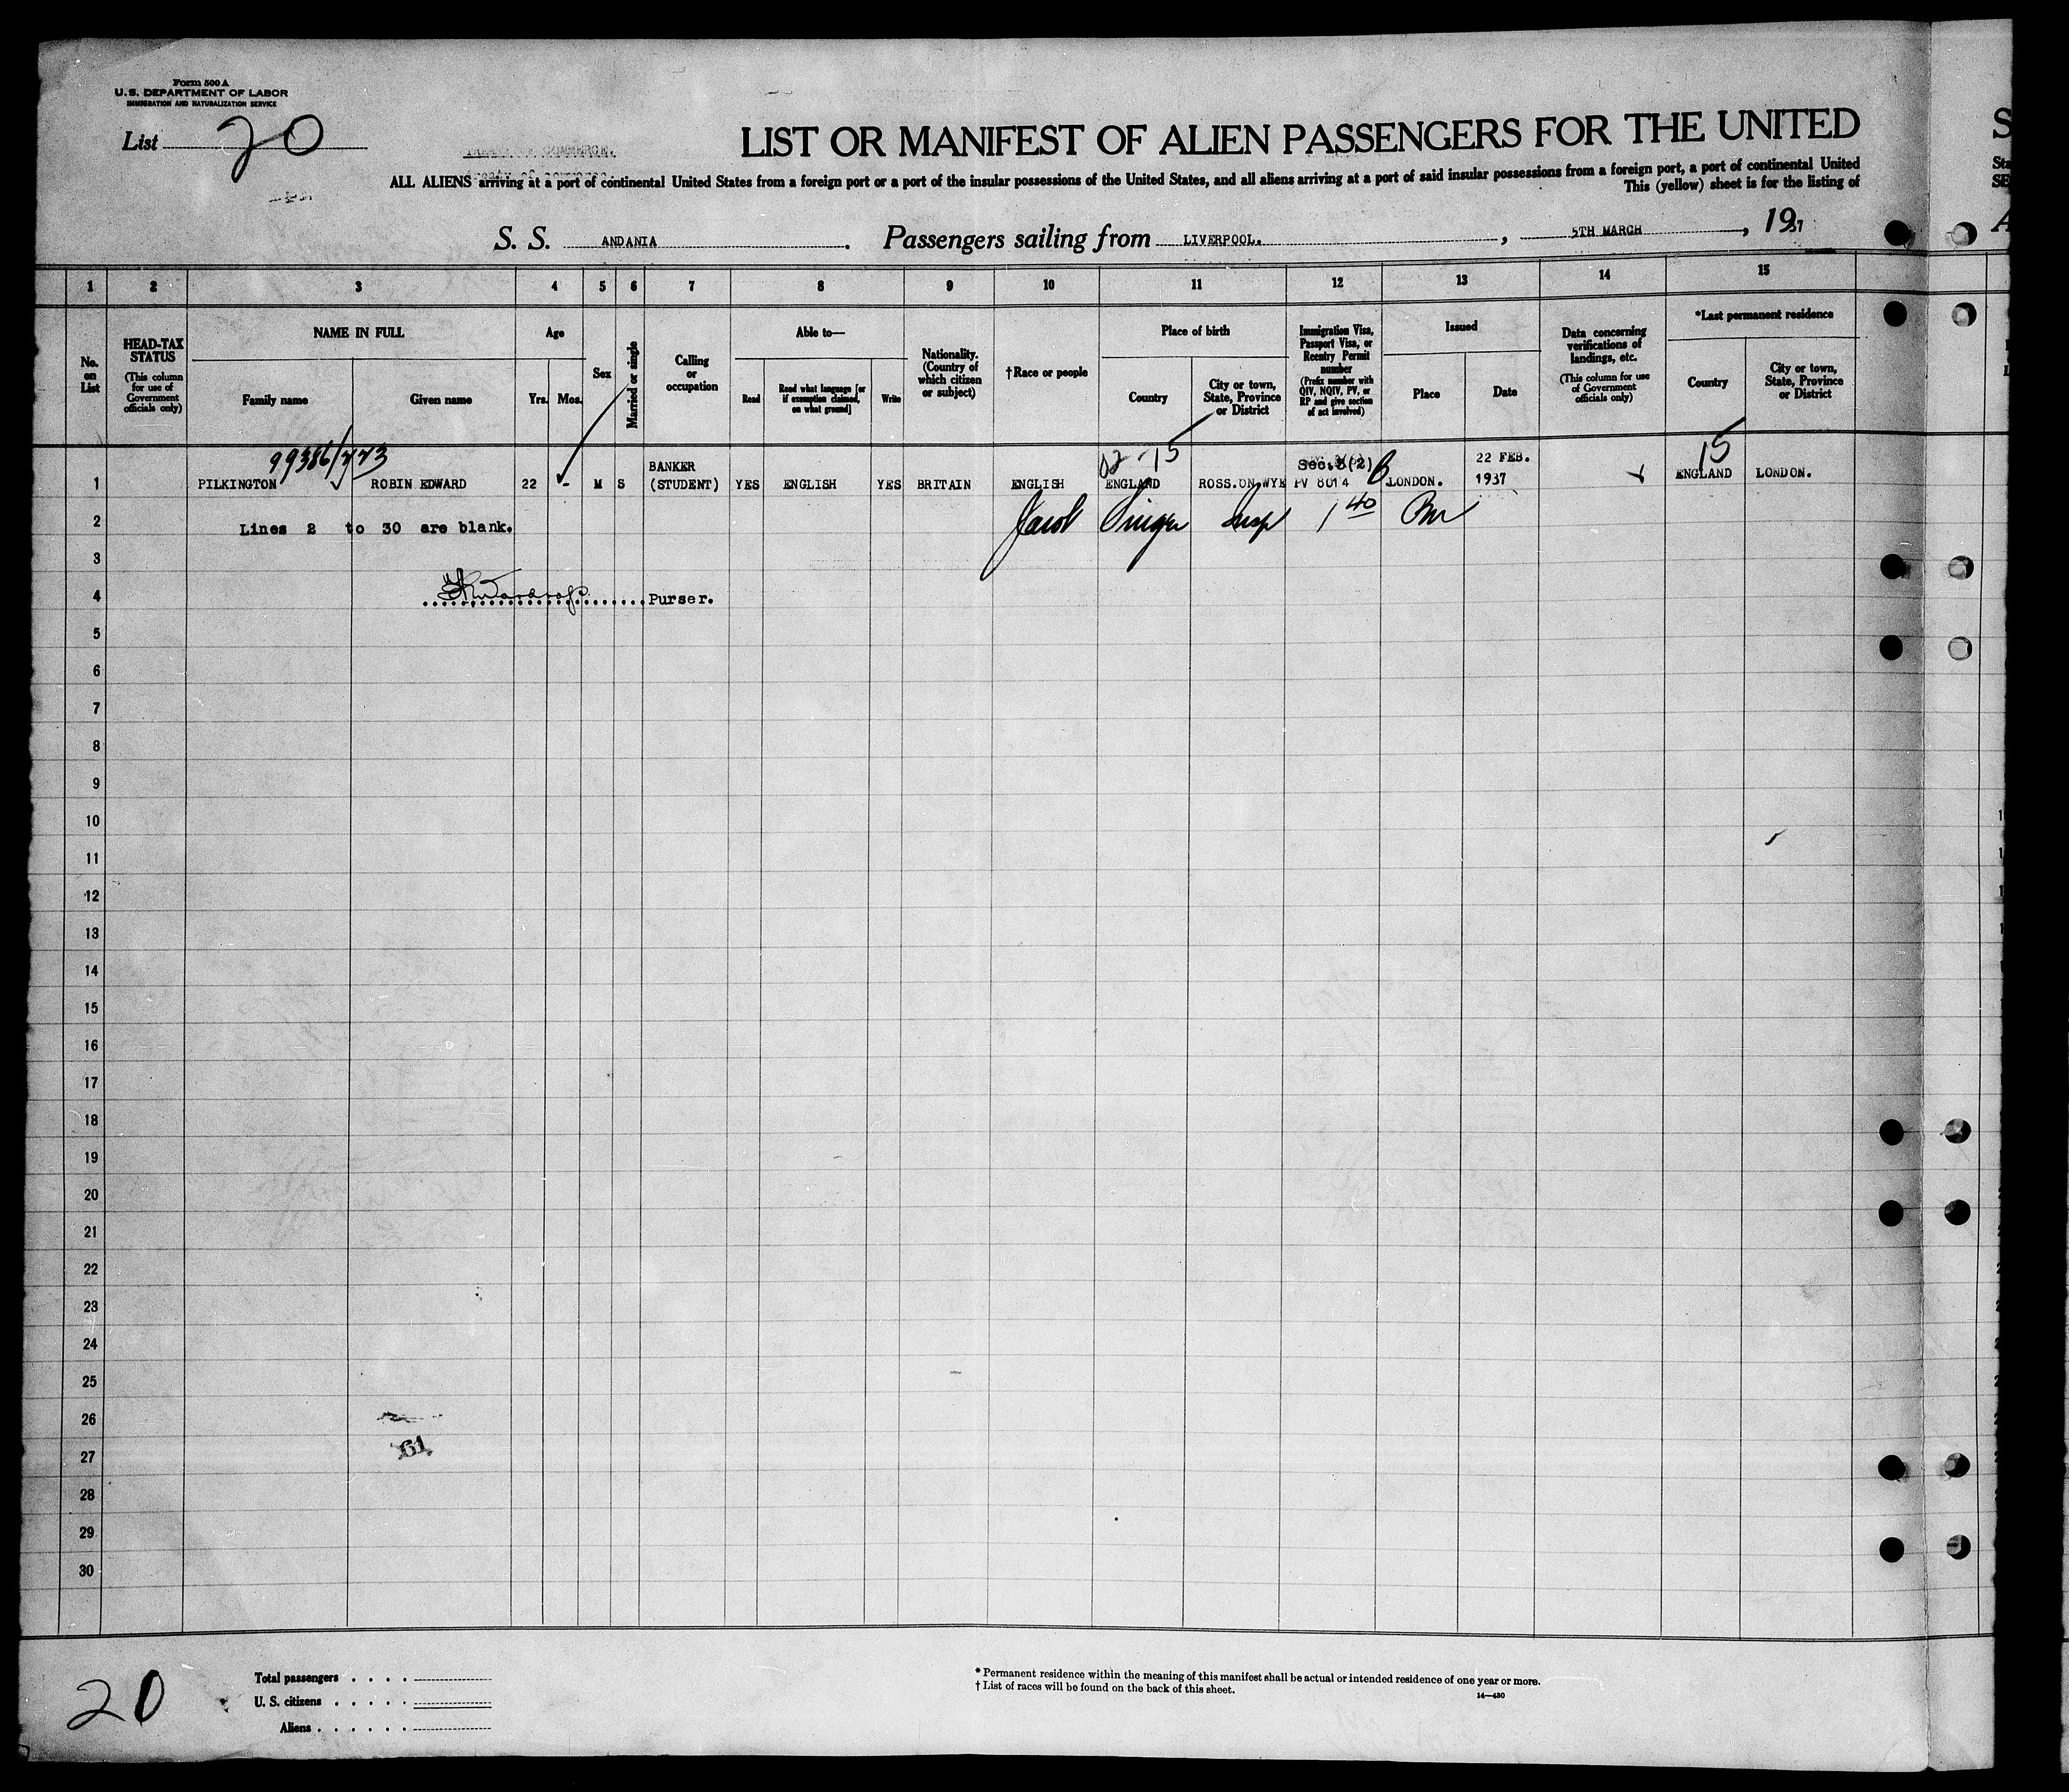 Form 500 A
U. S. DEPARTMENT OF LABOR
IMMIGRATION AND NATURALIZATION SERVICE
List 20
LIST OR MANIFEST OF ALIEN PASSENGERS FOR THE UNITED
ALL ALIENS arriving at a port of continental United States from a foreign port or a port of the insular possessions of the United States, and all aliens arriving at a port of said insular possessions from a foreign port, a port of continental United
This (yellow) sheet is for the listing of
S. S. ANDANIA. Passengers sailing from LIVERPOOL., 5TH MARCH, 1937
1 2 3 4 5 6 7 8 9 10 11 12 13 14 15
No. on List
HEAD-TAX STATUS (This column for use of Government officials only)
NAME IN FULL
Family name
Given name
Age
Yrs. Mos.
Sex
Married or single
Calling or occupation
Able to—
Read
Read what language [or if exemption claimed, on what ground]
Write
Nationality. (Country of which citizen or subject)
†Race or people
Place of birth
Country
City or town, State, Province or District
Immigration Visa, Passport Visa, or Reentry Permit number (Prefix number with QIV, NQIV, PV, or RP and give section of act involved)
Issued
Place
Date
Data concerning verifications of landings, etc. (This column for use of Government officials only)
*Last permanent residence
Country
City or town, State, Province or District
99386/443 02-15 15
1 PILKINGTON ROBIN EDWARD 22 - M S BANKER (STUDENT) YES ENGLISH YES BRITAIN ENGLISH ENGLAND ROSS.ON.WYE Sec.3(2) B PV 8014 LONDON. 22 FEB. 1937 ENGLAND LONDON.
2 Lines 2 to 30 are blank. Jacob Singer Insp 1 40
3
4 Purser.
5
6
7
8
9
10
11
12
13
14
15
16
17
18
19
20
21
22
23
24
25
26
27
28
29
30
61
20
Total passengers . . . .
U. S. citizens . . . . .
Aliens . . . . . .
* Permanent residence within the meaning of this manifest shall be actual or intended residence of one year or more.
† List of races will be found on the back of this sheet.
14—430